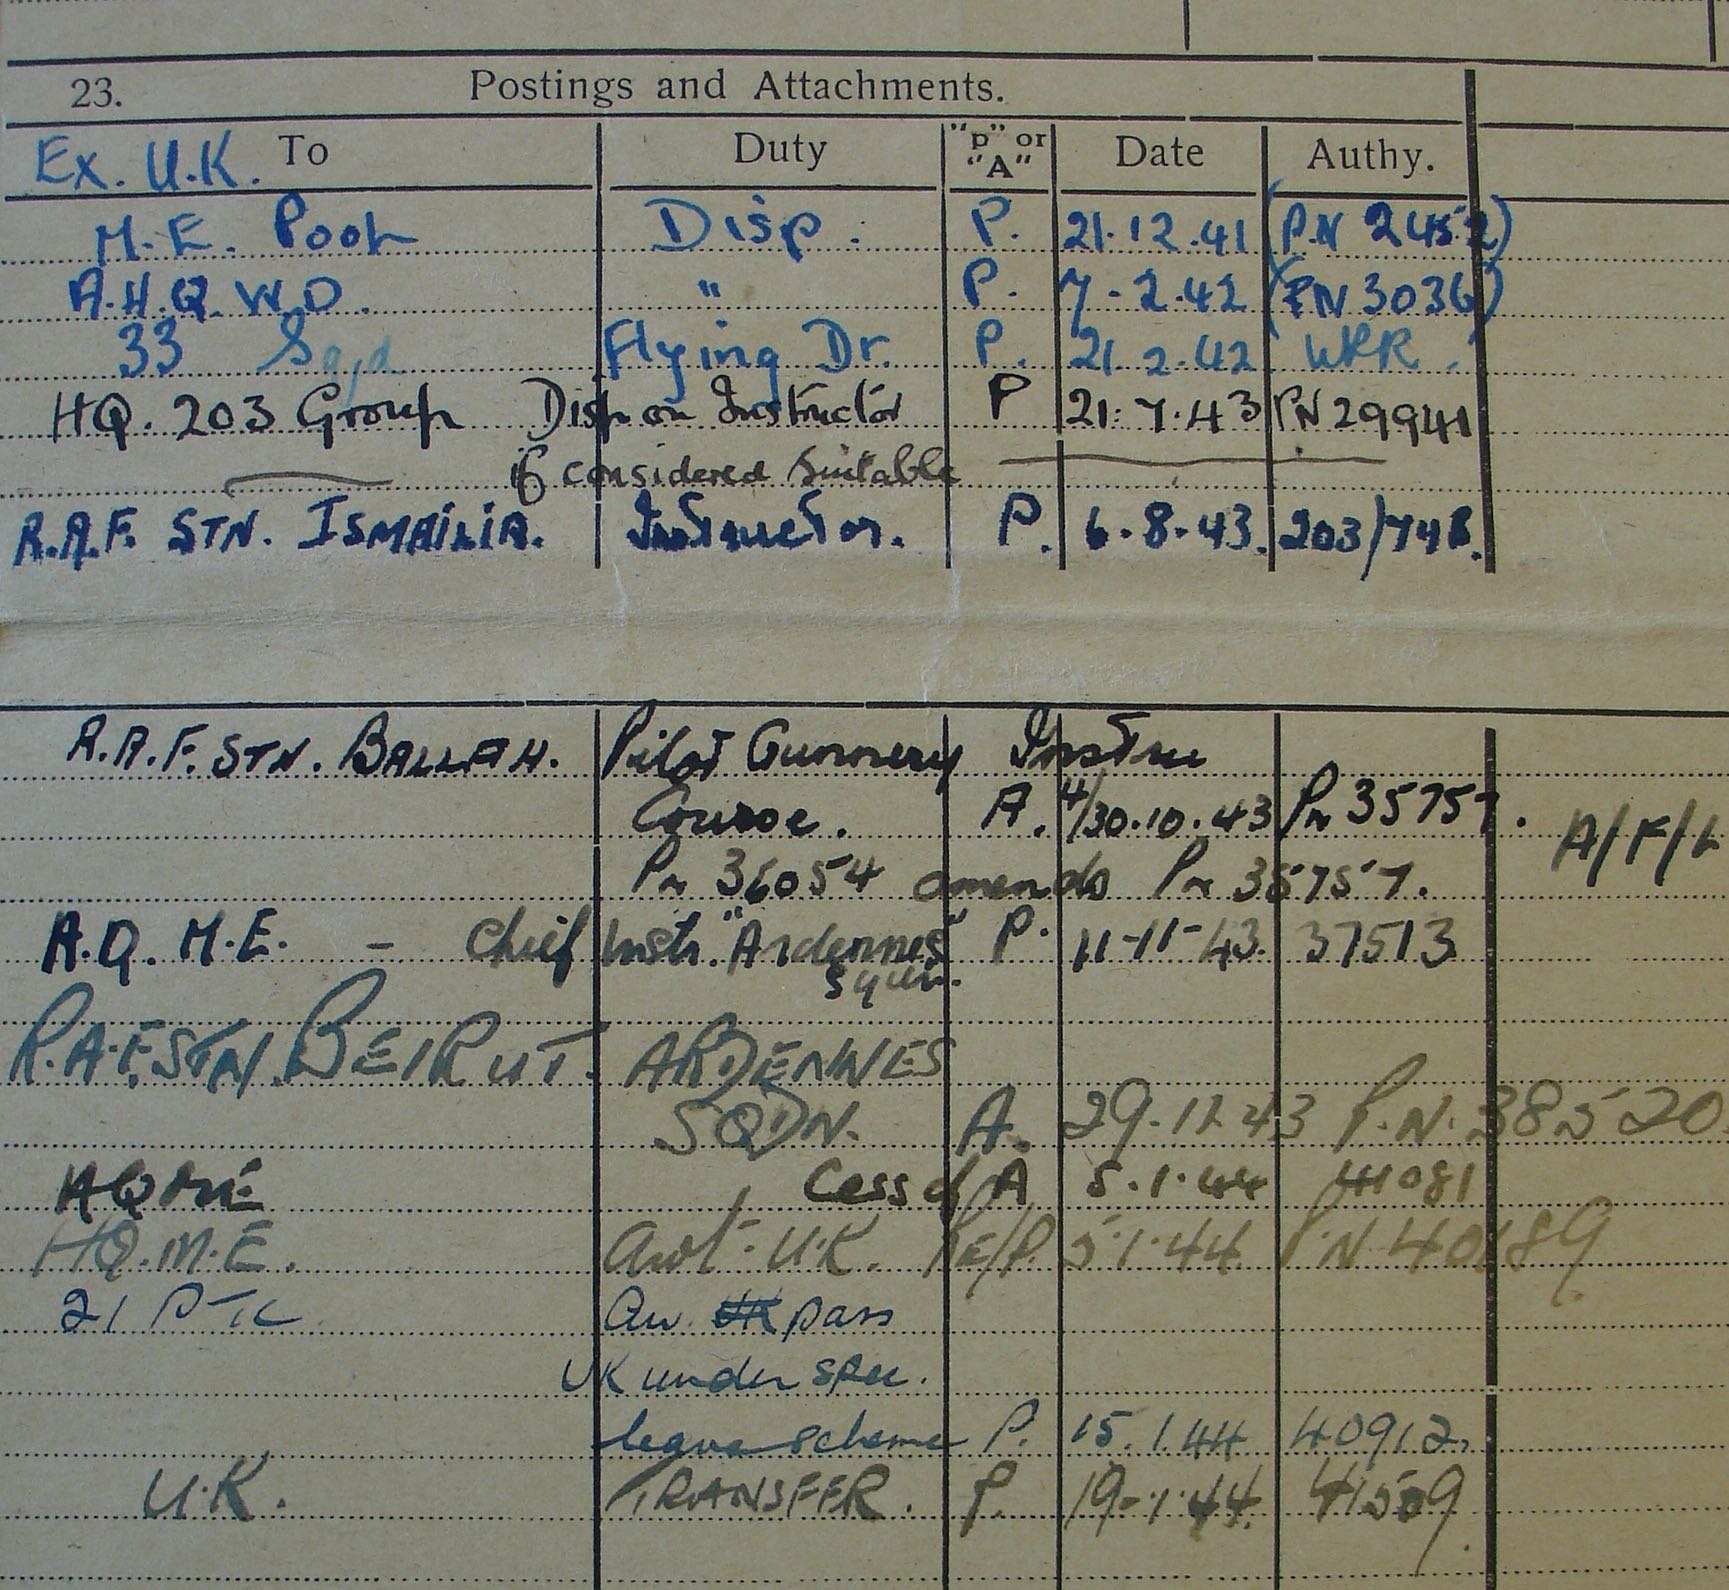 23. Postings and Attachments.
Ex. U.K. To Duty "p" or "A" Date Authy.
M.E. Pool Disp. P. 21.12.41 (P.N 2452)
A.H.Q. W.D. " P. 7-2.42 (PN 3036)
33 Sqd Flying Dr. P. 21.2.42 WRR.
HQ. 203 Group Disp on Instructor P 21.7.43 PN 29941
if considered suitable
R.A.F. STN. ISMAILIA. Instructor. P. 6.8.43. 203/748.
R.A.F. STN. BALLAH. Pilot Gunnery Instru
Course. A. 4/30.10.43 Pn 35757. A/F/L
Pn 36054 amends Pn 35757.
H.Q. M.E. - Chief Instr. "Ardennes" P. 11-11-43. 37513
Squn.
R.A.F. STN. BEIRUT. ARDENNES
SQDN. A. 29.12.43 P.N. 38520.
HQ ME Cess of A 5.1.44 41081
HQ. M.E. Awt. U.K. RE/P. 5.1.44 P.N 40189
21 PTC Aw. UK pass
UK under spec.
leave scheme P. 15.1.44 40912.
U.K. TRANSFER. P. 19.1.44. 41509